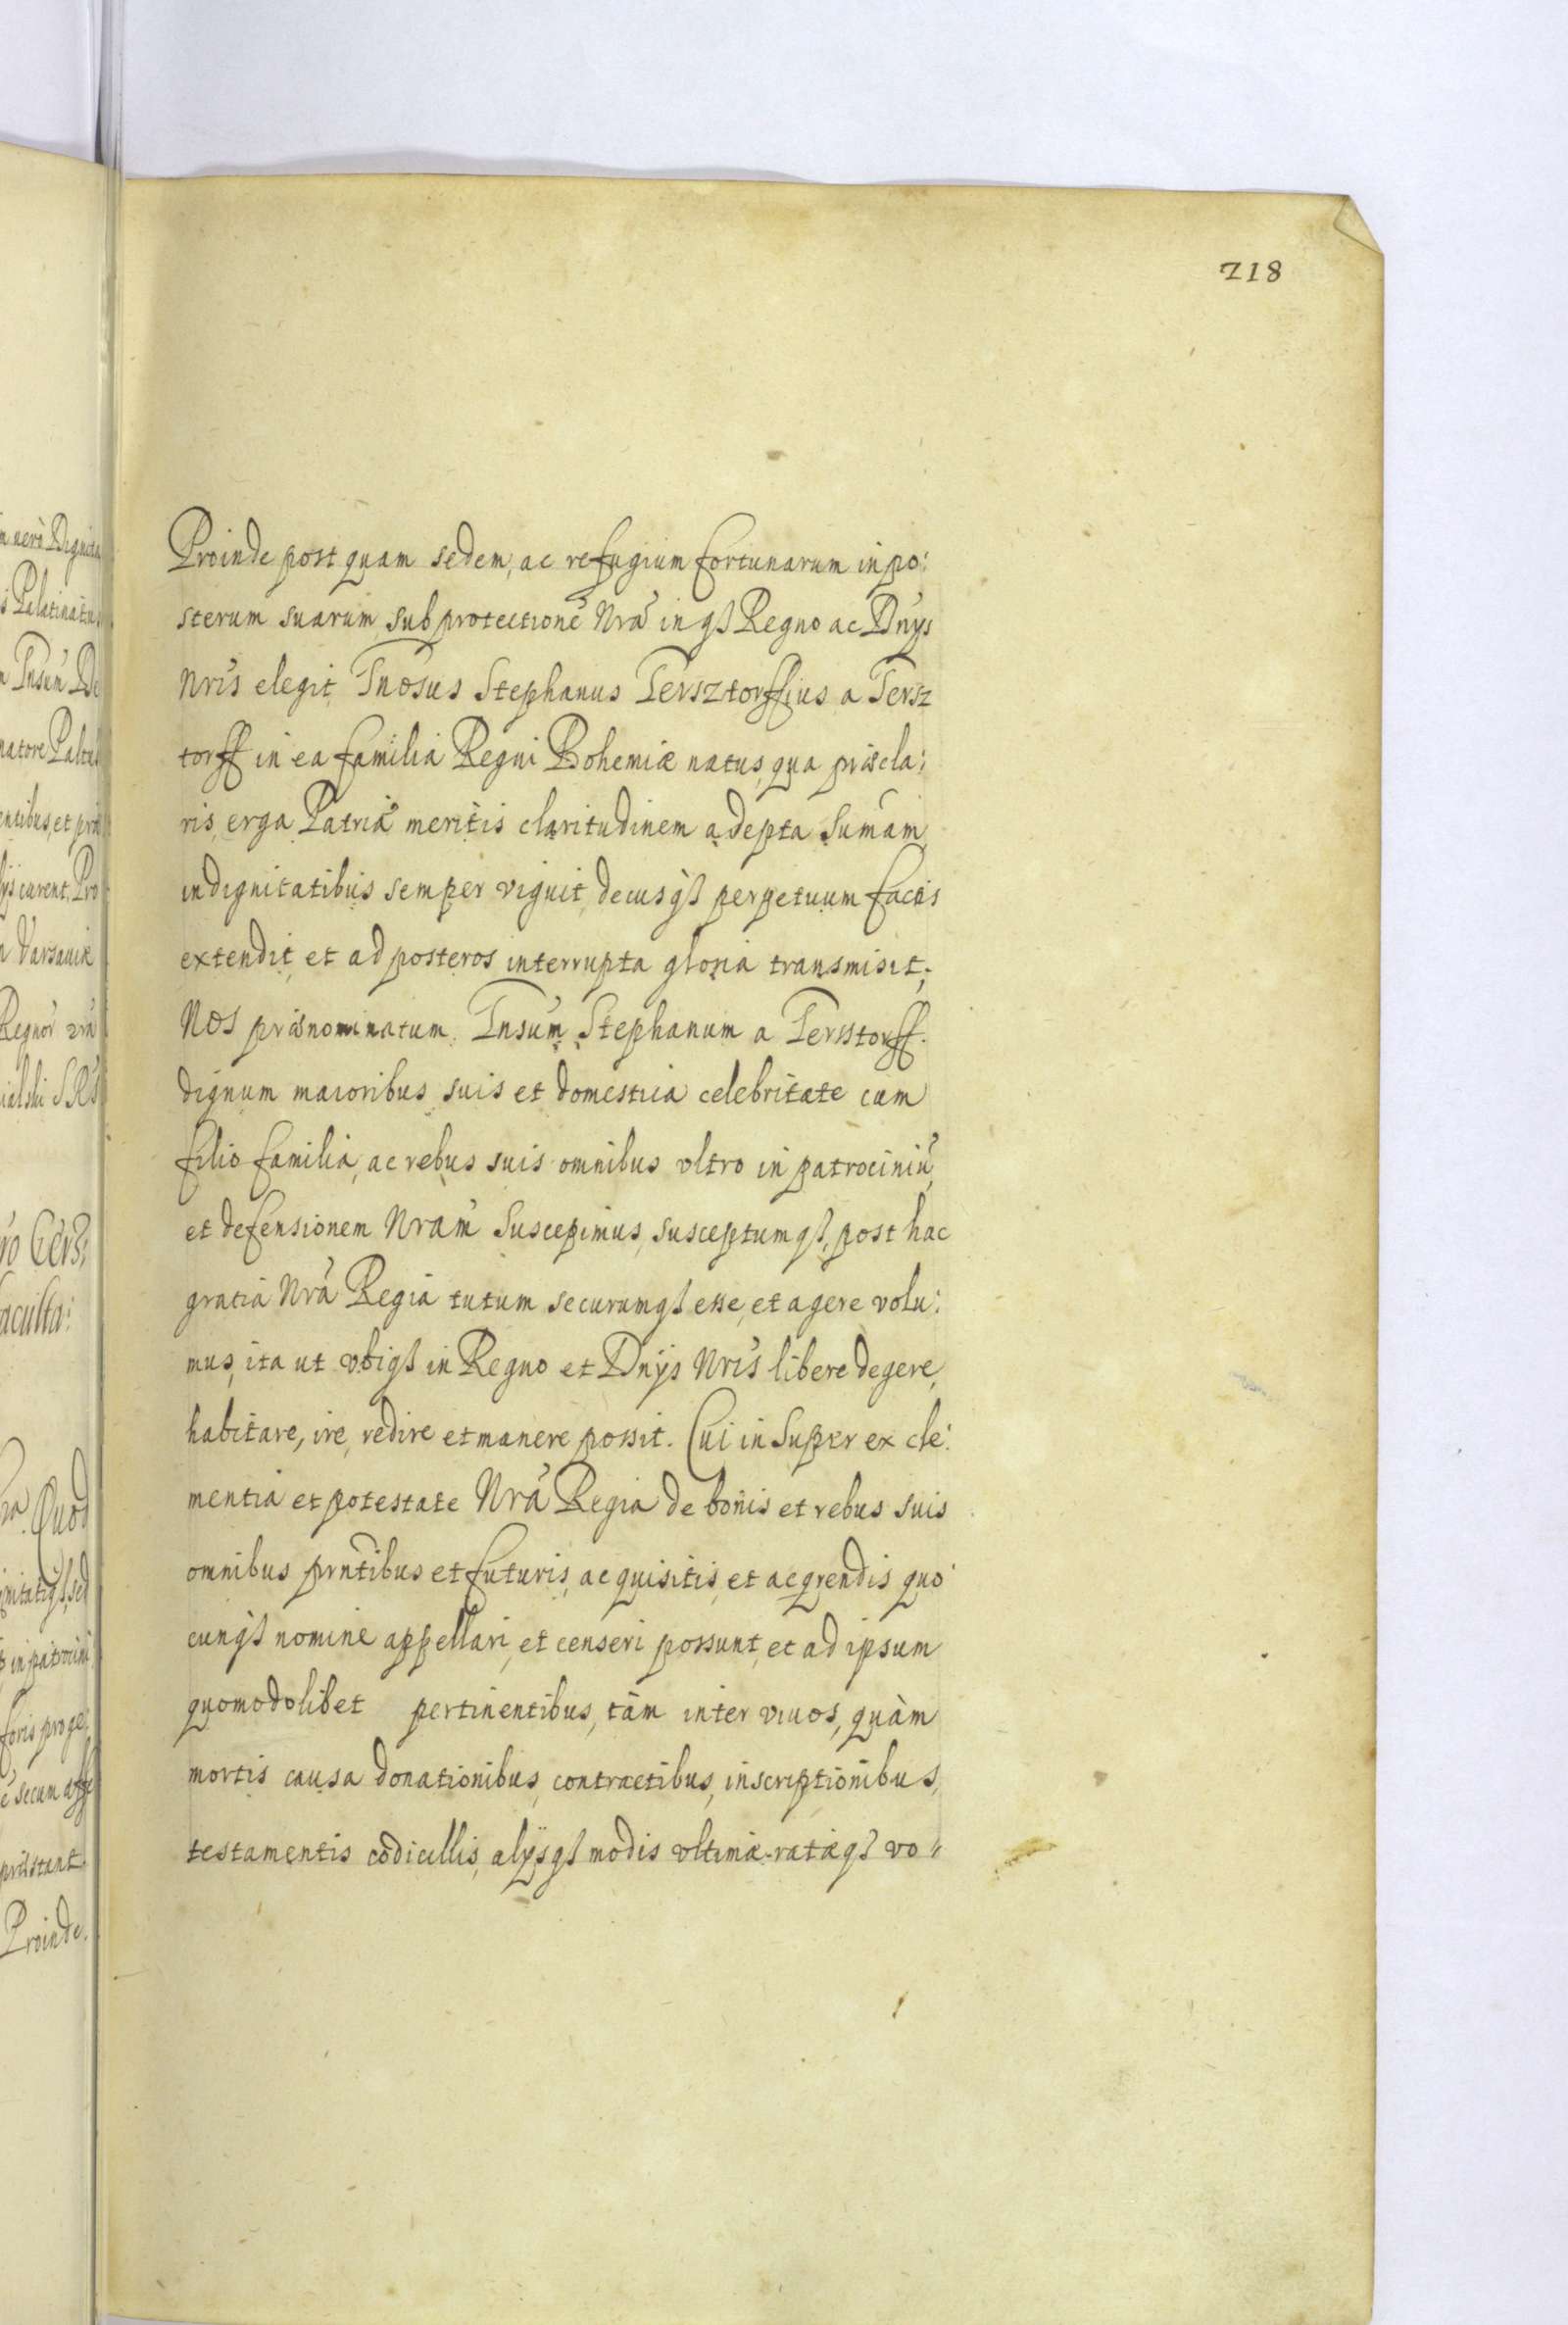 718
Proinde post quam sedem, ac refugium fortunarum in po:
sterum suarum, sub protectionẽ Nrã inqȝ Regno ac Dnys
Nris elegit Gnosus Stephanus Gersztorffius a Gersz
torff in ea familia Regni Bohemiæ natus, qua præcla:
ris erga Patriã meritis claritudinem adepta Sumam
in dignitatibus semper viguit, decusqȝ perpetuum factis
extendit, et ad posteros interrupta gloria transmisit;
Nos prænominatum Gnsum Stephanum a Gersstorff.
dignum maioribus suis et domestica celebritate cum
filio familia, ac rebus suis omnibus vltro in patrociniũ
et defensionem Nram Suscepimus, susceptumqȝ, post hac
gratia Nra Regia tutum securumqȝ esse, et agere volu:
mus, ita ut vbiqȝ in Regno et Dnÿs Nris libere degere,
habitare, ire, redire et manere possit. Cui in Super ex cle:
mentia et potestate Nra Regia de bonis et rebus suis
omnibus prntibus et futuris, acquisitis, et acqrendis quo
cunqȝ nomine appellari, et censeri possunt, et ad ipsum
quomodolibet pertinentibus, tàm inter viuos, quàm
mortis causa donationibus, contractibus, inscriptionibus,
testamentis codicillis, alÿsqȝ modis vltimæ ratæqȝ vo"